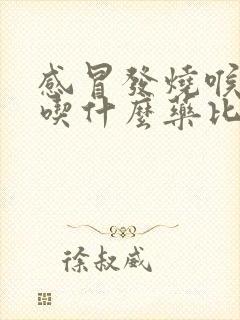 感冒發燒喉
喫什麼藥比
徐叔威